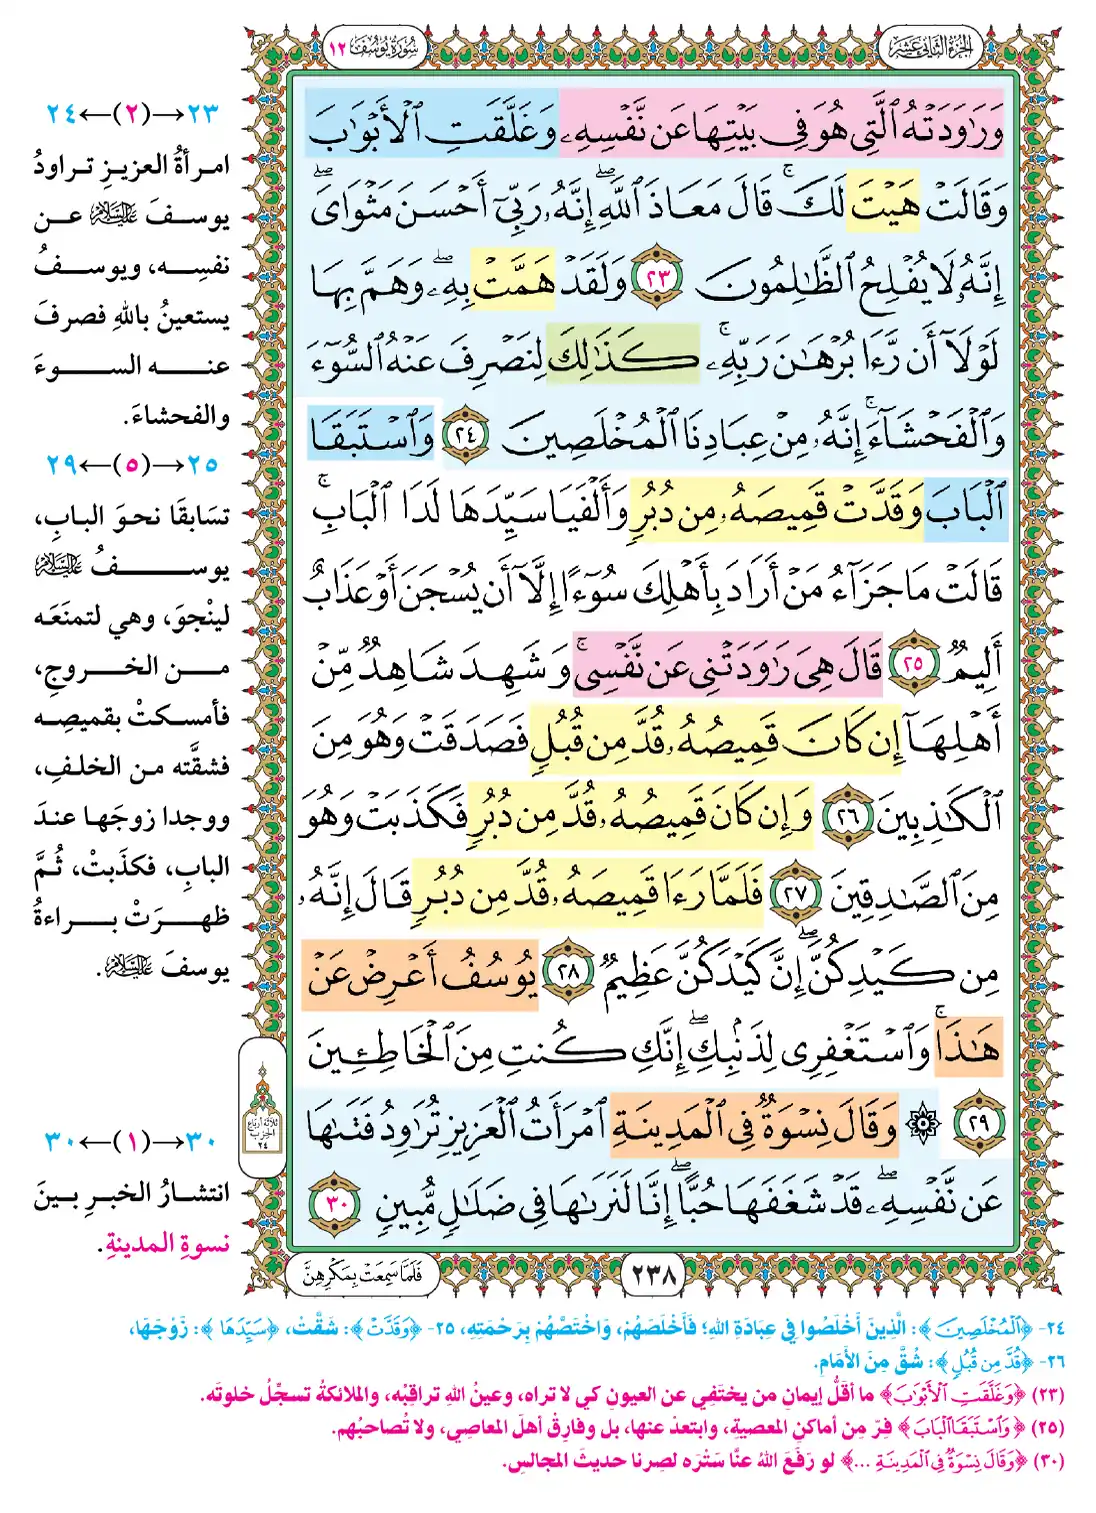 الجزء الثاني عشر
سورة يوسف ١٢
وَرَٰوَدَتْهُ ٱلَّتِى هُوَ فِى بَيْتِهَا عَن نَّفْسِهِۦ وَغَلَّقَتِ ٱلْأَبْوَٰبَ
وَقَالَتْ هَيْتَ لَكَ ۚ قَالَ مَعَاذَ ٱللَّهِ ۖ إِنَّهُۥ رَبِّىٓ أَحْسَنَ مَثْوَاىَ ۖ
إِنَّهُۥ لَا يُفْلِحُ ٱلظَّٰلِمُونَ ٢٣ وَلَقَدْ هَمَّتْ بِهِۦ ۖ وَهَمَّ بِهَا
لَوْلَآ أَن رَّءَا بُرْهَٰنَ رَبِّهِۦ ۚ كَذَٰلِكَ لِنَصْرِفَ عَنْهُ ٱلسُّوٓءَ
وَٱلْفَحْشَآءَ ۚ إِنَّهُۥ مِنْ عِبَادِنَا ٱلْمُخْلَصِينَ ٢٤ وَٱسْتَبَقَا
ٱلْبَابَ وَقَدَّتْ قَمِيصَهُۥ مِن دُبُرٍ وَأَلْفَيَا سَيِّدَهَا لَدَا ٱلْبَابِ ۚ
قَالَتْ مَا جَزَآءُ مَنْ أَرَادَ بِأَهْلِكَ سُوٓءًا إِلَّآ أَن يُسْجَنَ أَوْ عَذَابٌ
أَلِيمٌ ٢٥ قَالَ هِىَ رَٰوَدَتْنِى عَن نَّفْسِى ۚ وَشَهِدَ شَاهِدٌ مِّنْ
أَهْلِهَآ إِن كَانَ قَمِيصُهُۥ قُدَّ مِن قُبُلٍ فَصَدَقَتْ وَهُوَ مِنَ
ٱلْكَٰذِبِينَ ٢٦ وَإِن كَانَ قَمِيصُهُۥ قُدَّ مِن دُبُرٍ فَكَذَبَتْ وَهُوَ
مِنَ ٱلصَّٰدِقِينَ ٢٧ فَلَمَّا رَءَا قَمِيصَهُۥ قُدَّ مِن دُبُرٍ قَالَ إِنَّهُۥ
مِن كَيْدِكُنَّ ۖ إِنَّ كَيْدَكُنَّ عَظِيمٌ ٢٨ يُوسُفُ أَعْرِضْ عَنْ
هَٰذَا ۚ وَٱسْتَغْفِرِى لِذَنۢبِكِ ۖ إِنَّكِ كُنتِ مِنَ ٱلْخَاطِـِٔينَ
٢٩ ۞ وَقَالَ نِسْوَةٌ فِى ٱلْمَدِينَةِ ٱمْرَأَتُ ٱلْعَزِيزِ تُرَٰوِدُ فَتَىٰهَا
عَن نَّفْسِهِۦ ۖ قَدْ شَغَفَهَا حُبًّا ۖ إِنَّا لَنَرَىٰهَا فِى ضَلَٰلٍ مُّبِينٍ ٣٠
٢٣→(٢)←٢٤
امرأةُ العزيزِ تراودُ
يوسفَ عليه السلام عن
نفسِه، ويوسفُ
يستعينُ باللهِ فصرفَ
عنه السوءَ
والفحشاءَ.
٢٥→(٥)←٢٩
تسَابقَا نحوَ البابِ،
يوسفُ عليه السلام
لينْجوَ، وهي لتمنَعَه
من الخروجِ،
فأمسكتْ بقميصِه
فشقَّته من الخلفِ،
ووجدا زوجَها عندَ
البابِ، فكذَبتْ، ثُمَّ
ظهرَتْ براءةُ
يوسفَ عليه السلام.
ثلاثة أرباع
الحزب
٢٤
٣٠→(١)←٣٠
انتشارُ الخبرِ بينَ
نسوةِ المدينةِ.
٢٣٨
فَلَمَّا سَمِعَتْ بِمَكْرِهِنَّ
٢٤- ﴿ٱلْمُخْلَصِينَ﴾: الَّذِينَ أَخْلَصُوا فِي عِبَادَةِ اللهِ؛ فَأَخْلَصَهُمْ، وَاخْتَصَّهُمْ بِرَحْمَتِهِ، ٢٥- ﴿وَقَدَّتْ﴾: شَقَّتْ، ﴿سَيِّدَهَا﴾: زَوْجَهَا،
٢٦- ﴿قُدَّ مِن قُبُلٍ﴾: شُقَّ مِنَ الأَمَامِ.
(٢٣) ﴿وَغَلَّقَتِ ٱلْأَبْوَٰبَ﴾ ما أقلَّ إيمانِ من يختَفِي عن العيونِ كي لا تراه، وعينُ اللهِ تراقبُه، والملائكةُ تسجِّلُ خلوتَه.
(٢٥) ﴿وَٱسْتَبَقَا ٱلْبَابَ﴾ فِرّ مِن أماكنِ المعصيةِ، وابتعدْ عنها، بل وفارِقْ أهلَ المعاصِي، ولا تُصاحبْهم.
(٣٠) ﴿وَقَالَ نِسْوَةٌ فِى ٱلْمَدِينَةِ ...﴾ لو رَفَعَ اللهُ عنَّا سَتْرَه لصِرنا حديثَ المجالسِ.